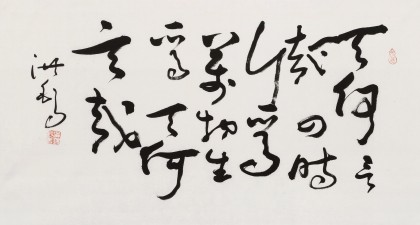 天何言
哉四時
行焉
萬物生
焉天何
言哉
洪